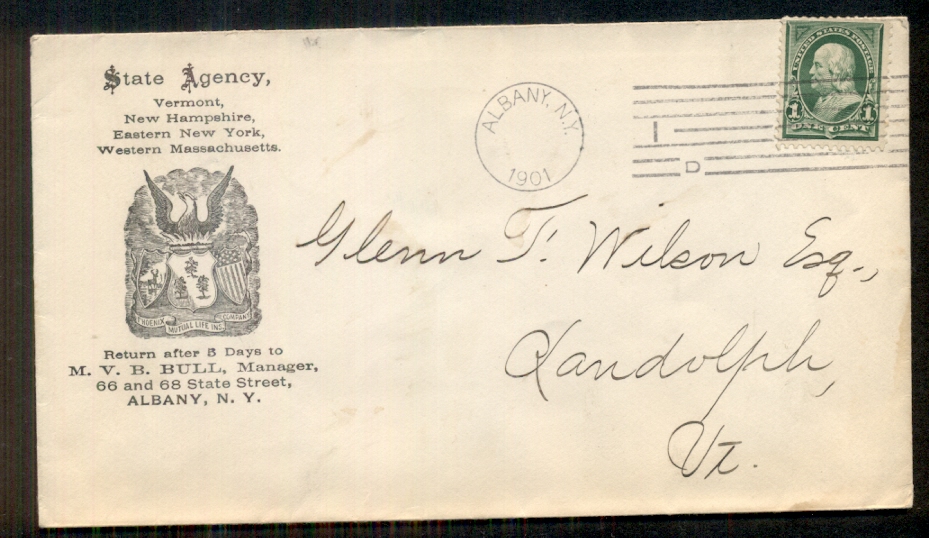 State Agency,
Vermont,
New Hampshire,
Eastern New York,
Western Massachusetts.
PHOENIX MUTUAL LIFE INS. COMPANY
Return after 5 Days to
M. V. B. BULL, Manager,
66 and 68 State Street,
ALBANY, N. Y.
ALBANY, N.Y.
1901
1
D
UNITED STATES POSTAGE
1 1
ONE CENT
Glenn F. Wilson Esq.,
Randolph,
Vt.